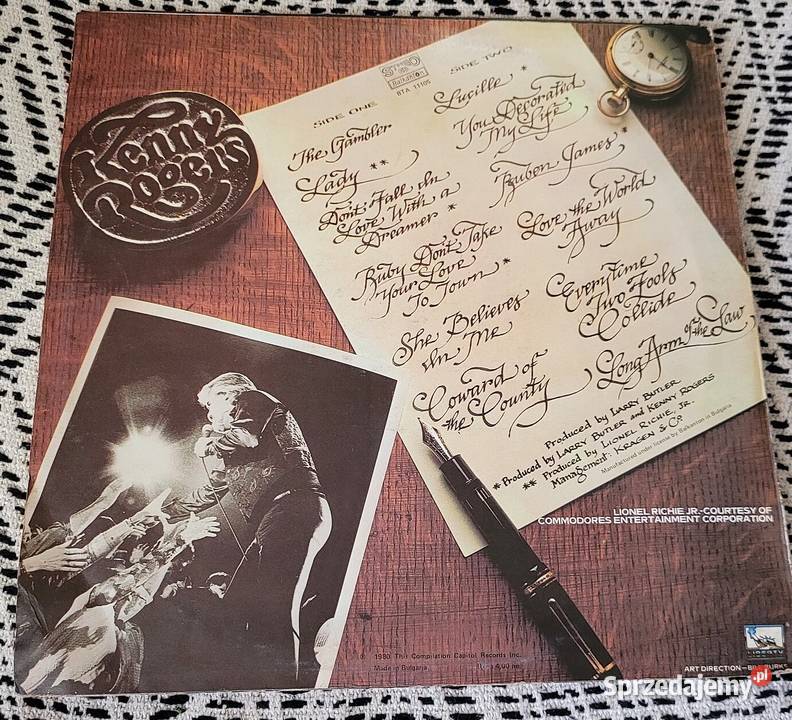 Kenny
Rogers
STEREO
Balkanton
BTA 11105
SIDE ONE
The Gambler
Lady **
Don't Fall In
Love With a
Dreamer *
Ruby Don't Take
Your Love
To Town *
She Believes
In Me
Coward of
the County
SIDE TWO
Lucille *
You Decorated
My Life
Ruben James *
Love the World
Away
Everytime
Two Fools
Collide
Long Arm of the Law
Produced by LARRY BUTLER
* Produced by LARRY BUTLER and KENNY ROGERS
** Produced by LIONEL RICHIE, JR.
Management: KRAGEN & Co
Manufactured under license by Balkanton in Bulgaria
LIONEL RICHIE JR.-COURTESY OF
COMMODORES ENTERTAINMENT CORPORATION
1980 This Compilation Capitol Records Inc.
Made in Bulgaria
LIBERTY
ART DIRECTION—BILL BURKS
Sprzedajemy.pl